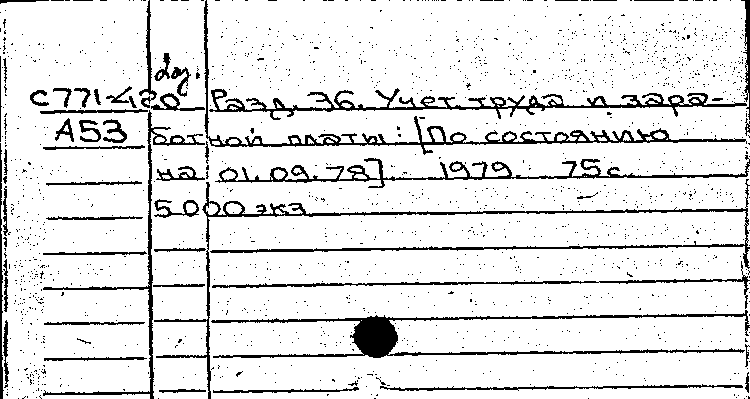 С771-420 Разд. 36. Учет труда и зара-
А53 ботной платы: [По состоянию
на 01.09.78]. 1979. 75с.
5000 экз.